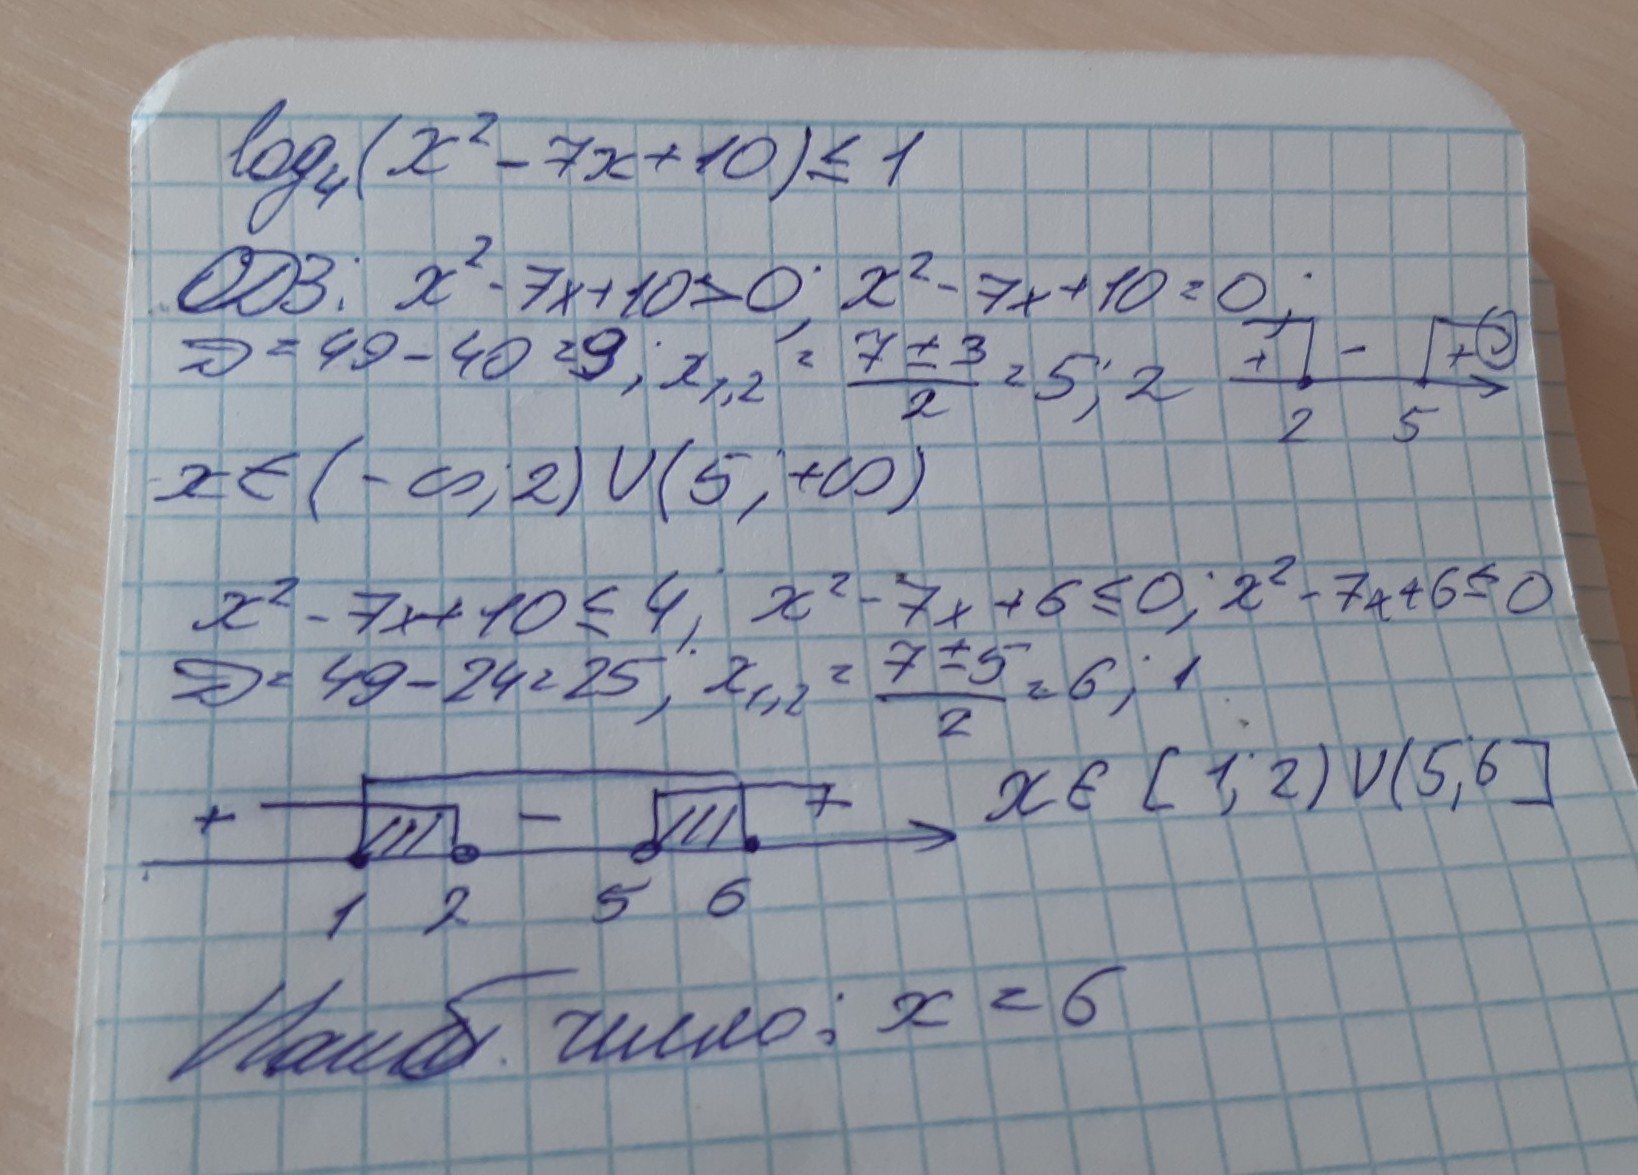 log₄(x² - 7x + 10) ≤ 1
ОДЗ: x² - 7x + 10 > 0; x² - 7x + 10 = 0;
D = 49 - 40 = 9; x₁,₂ = (7 ± 3)/2 = 5; 2
+ - +
2 5
x ∈ (-∞; 2) ∪ (5; +∞)
x² - 7x + 10 ≤ 4; x² - 7x + 6 ≤ 0; x² - 7x + 6 ≤ 0
D = 49 - 24 = 25; x₁,₂ = (7 ± 5)/2 = 6; 1
+ - + x ∈ [1; 2) ∪ (5; 6]
1 2 5 6
Наиб. число: x = 6